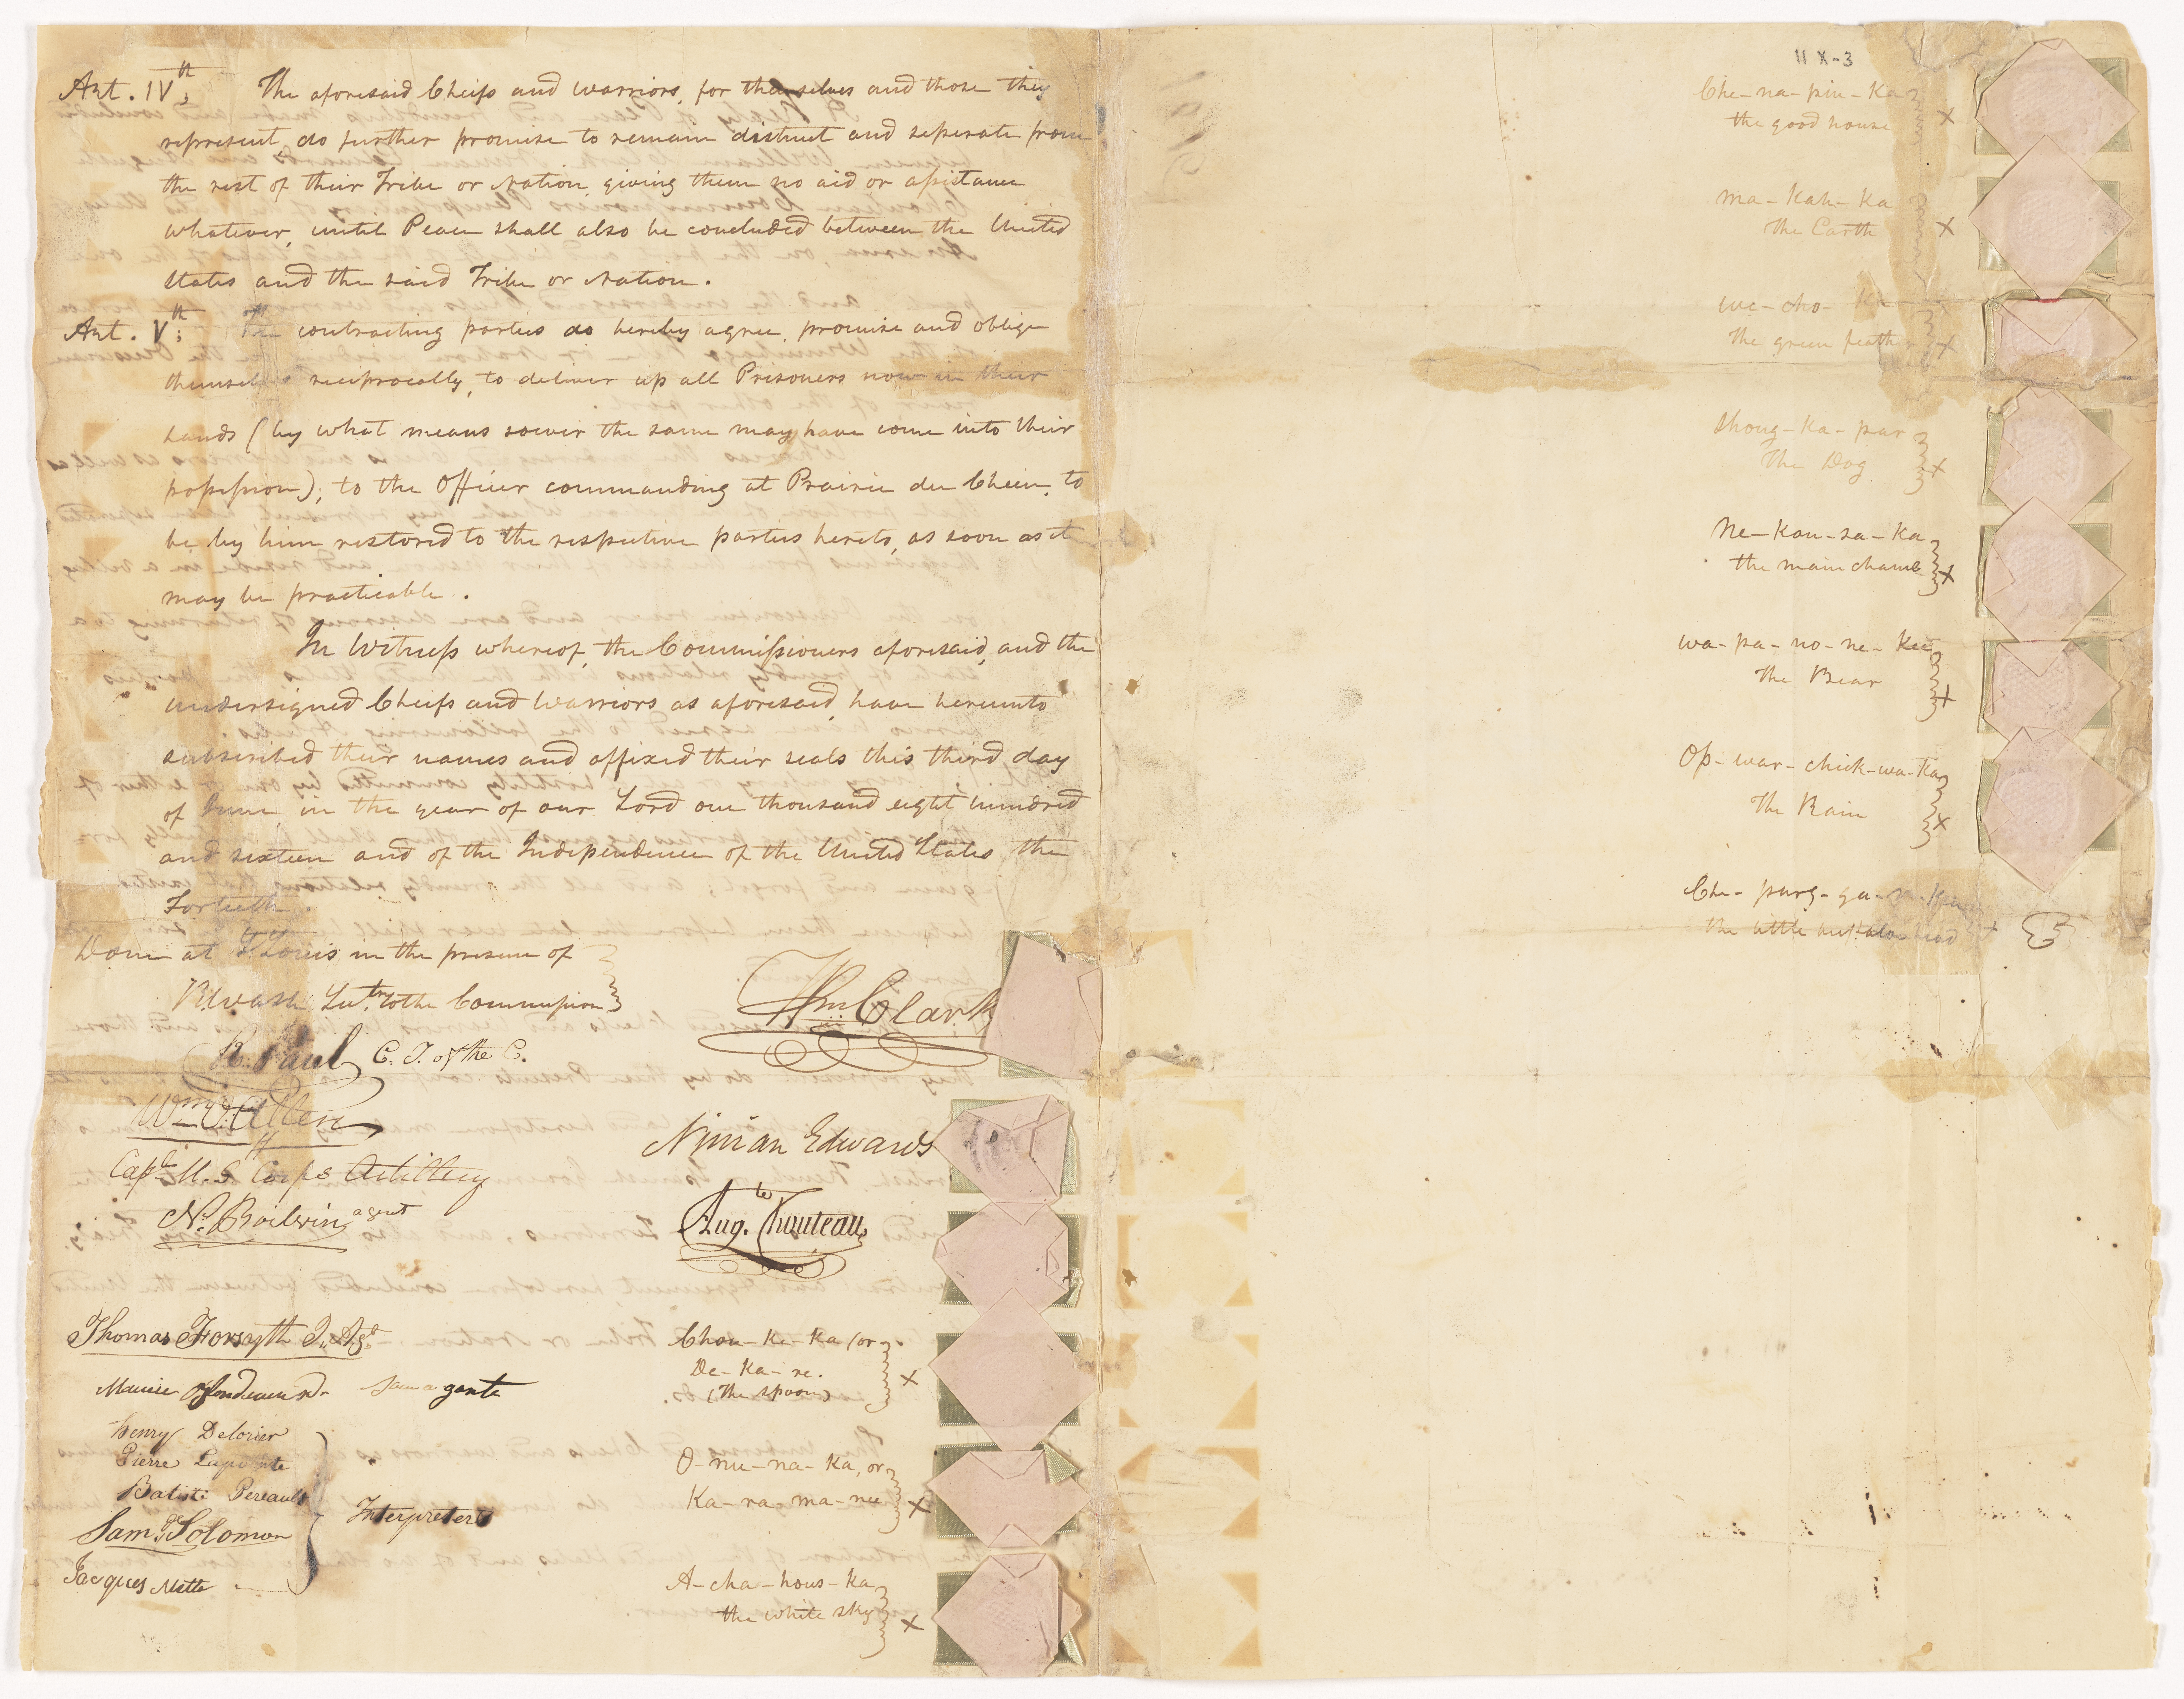 Art. IV.th The aforesaid Cheifs and warriors, for themselves and those they
represent, do further promise to remain distinct and seperate from
the rest of their Tribe or Nation, giving them no aid or assistance
whatever, until Peace shall also be concluded between the United
States and the said Tribe or Nation.
Art. V.th The contracting parties do hereby agree, promise and oblige
themselves reciprocally, to deliver up all Prisoners now in their
hands (by what means soever the same may have come into their
possession), to the Officer commanding at Prairie du Chein, to
be by him restored to the respective parties hereto, as soon as it
may be practicable.
In Witness whereof, the Commissioners aforesaid, and the
undersigned Cheifs and Warriors as aforesaid, have hereunto
subscribed their names and affixed their seals this third day
of June, in the year of our Lord one thousand eight hundred
and sixteen and of the Independence of the United States the
Fortieth.
Done at St. Louis in the presence of
R. Wash Secty. to the Commission
R. Paul C. T. of the C.
Wm. O. Allen
Capt. U. S. Corps Artillery
N. Boilvin, agent
Thomas Forsyth I. Agt.
Maurice Blondeaux
Henry Delorier
Pierre Lapointe
Batist Pereault
Saml. Solomon
Jacques Mette
Interpreters
Wm. Clark
Ninian Edwards
Aug.te Chouteau
Chou-ke-ka (or x
De-ka-re.
(The spoon)
O-nu-na-ka, or x
Ka-ra-ma-nee
A-cha-hous-ka x
the white sky
11 X-3
Che-na-pin-ka x
the good house
Ma-kah-ka x
the Earth
We-cho-ka x
the green feather
Shong-ka-par x
The Dog
Ne-kou-sa-ka x
the main channel
Wa-pa-no-ne-kee x
the Bear
Op-war-chick-wa-ka x
The Rain
Che-parg-ga-
the little buffaloe head x